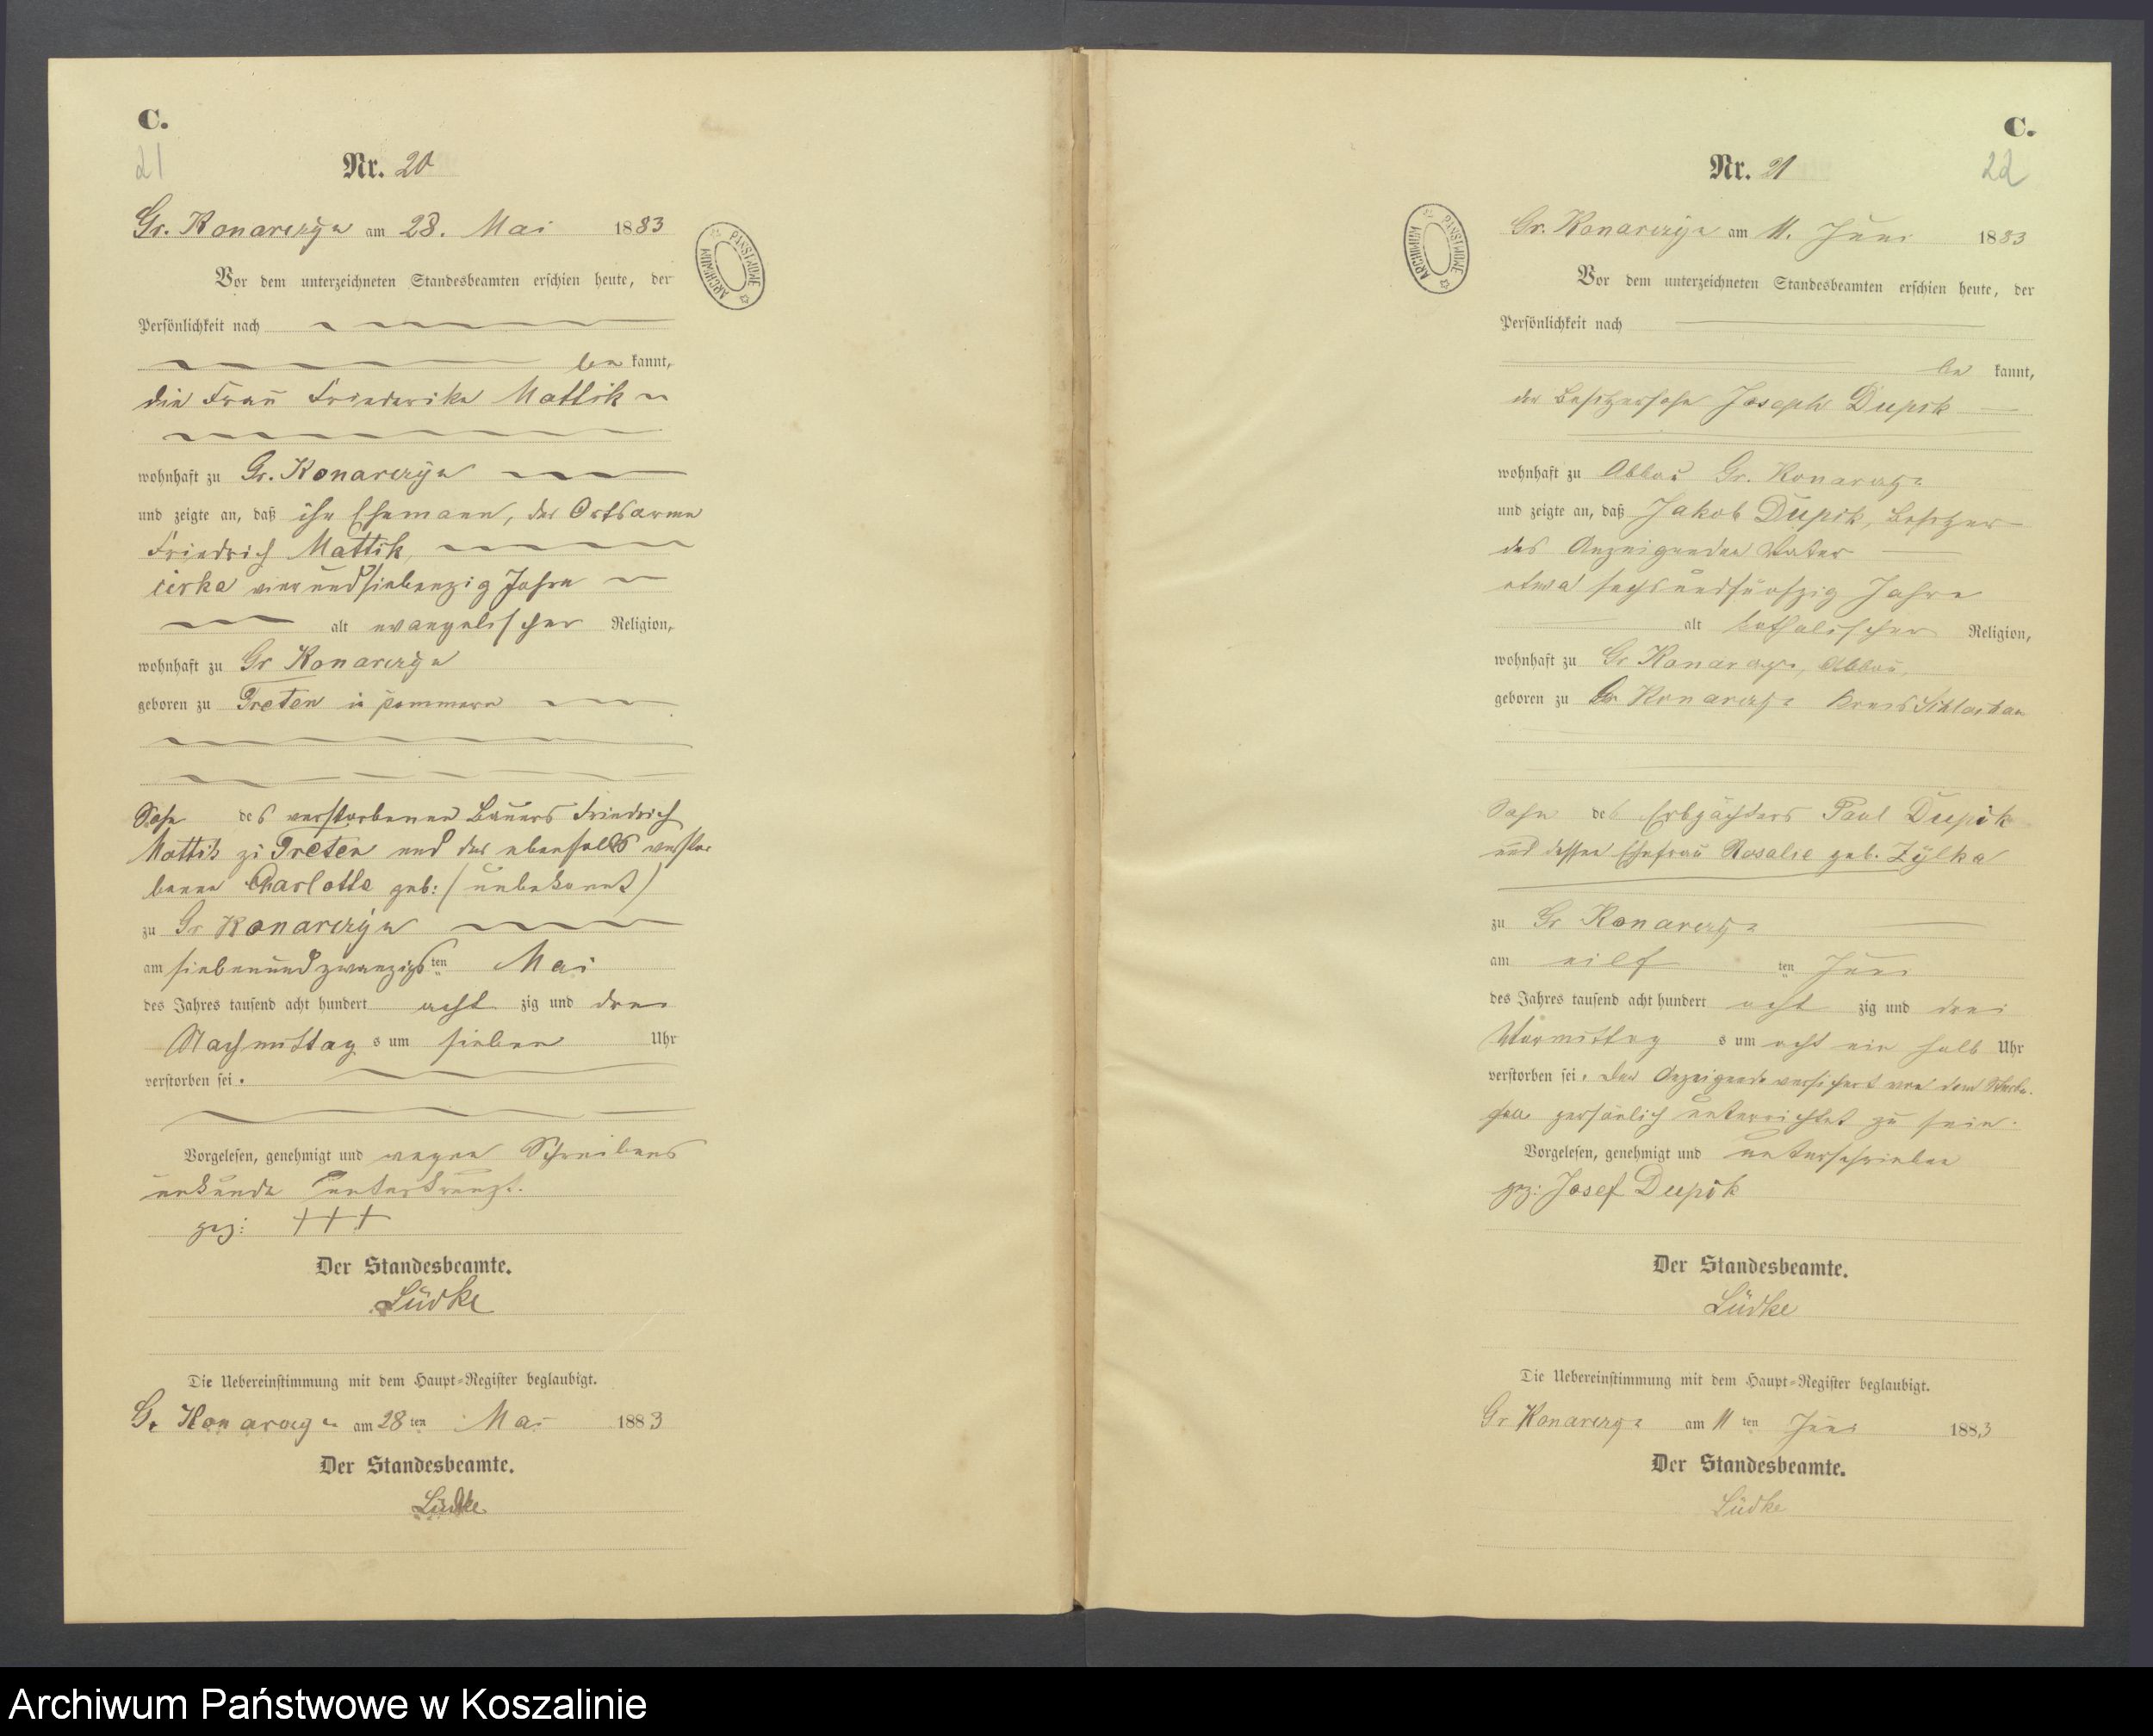 C.
21
Nr. 20
Gr. Konarczyn am 28. Mai 1883
Vor dem unterzeichneten Standesbeamten erschien heute, der
Persönlichkeit nach
be kannt,
die Frau Friederike Mattik
wohnhaft zu Gr. Konarczyn
und zeigte an, daß ihr Ehemann, der Ortsarme
Friedrich Mattik,
cirka vierundsiebenzig Jahre
alt evangelischer Religion,
wohnhaft zu Gr Konarczyn
geboren zu Treten in Pommern
Sohn des verstorbenen Bauers Friedrich
Mattik zu Treten und der ebenfalls verstor
benen Charlotte geb: (unbekannt)
zu Gr Konarczyn
am siebenundzwanzigsten Mai
des Jahres tausend acht hundert acht zig und drei
Nachmittag s um sieben Uhr
verstorben sei.
Vorgelesen, genehmigt und wegen Schreibens
unkunde unterkreuzt.
gez: +++
Der Standesbeamte.
Lüdke
Die Uebereinstimmung mit dem Haupt-Register beglaubigt.
Gr Konarczyn am 28 ten Mai 1883
Der Standesbeamte.
Lüdke
C.
22
Nr. 21
Gr. Konarczyn am 11. Juni 1883
Vor dem unterzeichneten Standesbeamten erschien heute, der
Persönlichkeit nach
be kannt,
der Besitzersohn Joseph Dupik
wohnhaft zu Abbau Gr. Konarczyn
und zeigte an, daß Jakob Dupik, Besitzer
des Anzeigenden Vater
etwa sechsundfünfzig Jahre
alt katholischer Religion,
wohnhaft zu Gr Konarczyn, Abbau,
geboren zu Gr Konarczyn Kreis Schlochau
Sohn des Erbpächters Paul Dupik
und dessen Ehefrau Rosalie geb. Zÿlka
zu Gr Konarczyn
am eilf ten Juni
des Jahres tausend acht hundert acht zig und drei
Vormittag s um acht ein halb Uhr
verstorben sei. Der Anzeigende versichert von dem Sterbe-
fall persönlich unterrichtet zu sein.
Vorgelesen, genehmigt und unterschrieben
gez: Josef Dupik
Der Standesbeamte.
Lüdke
Die Uebereinstimmung mit dem Haupt-Register beglaubigt.
Gr Konarczyn am 11 ten Juni 1883
Der Standesbeamte.
Lüdke
ARCHIWUM PAŃSTWOWE
ARCHIWUM PAŃSTWOWE
Archiwum Państwowe w Koszalinie